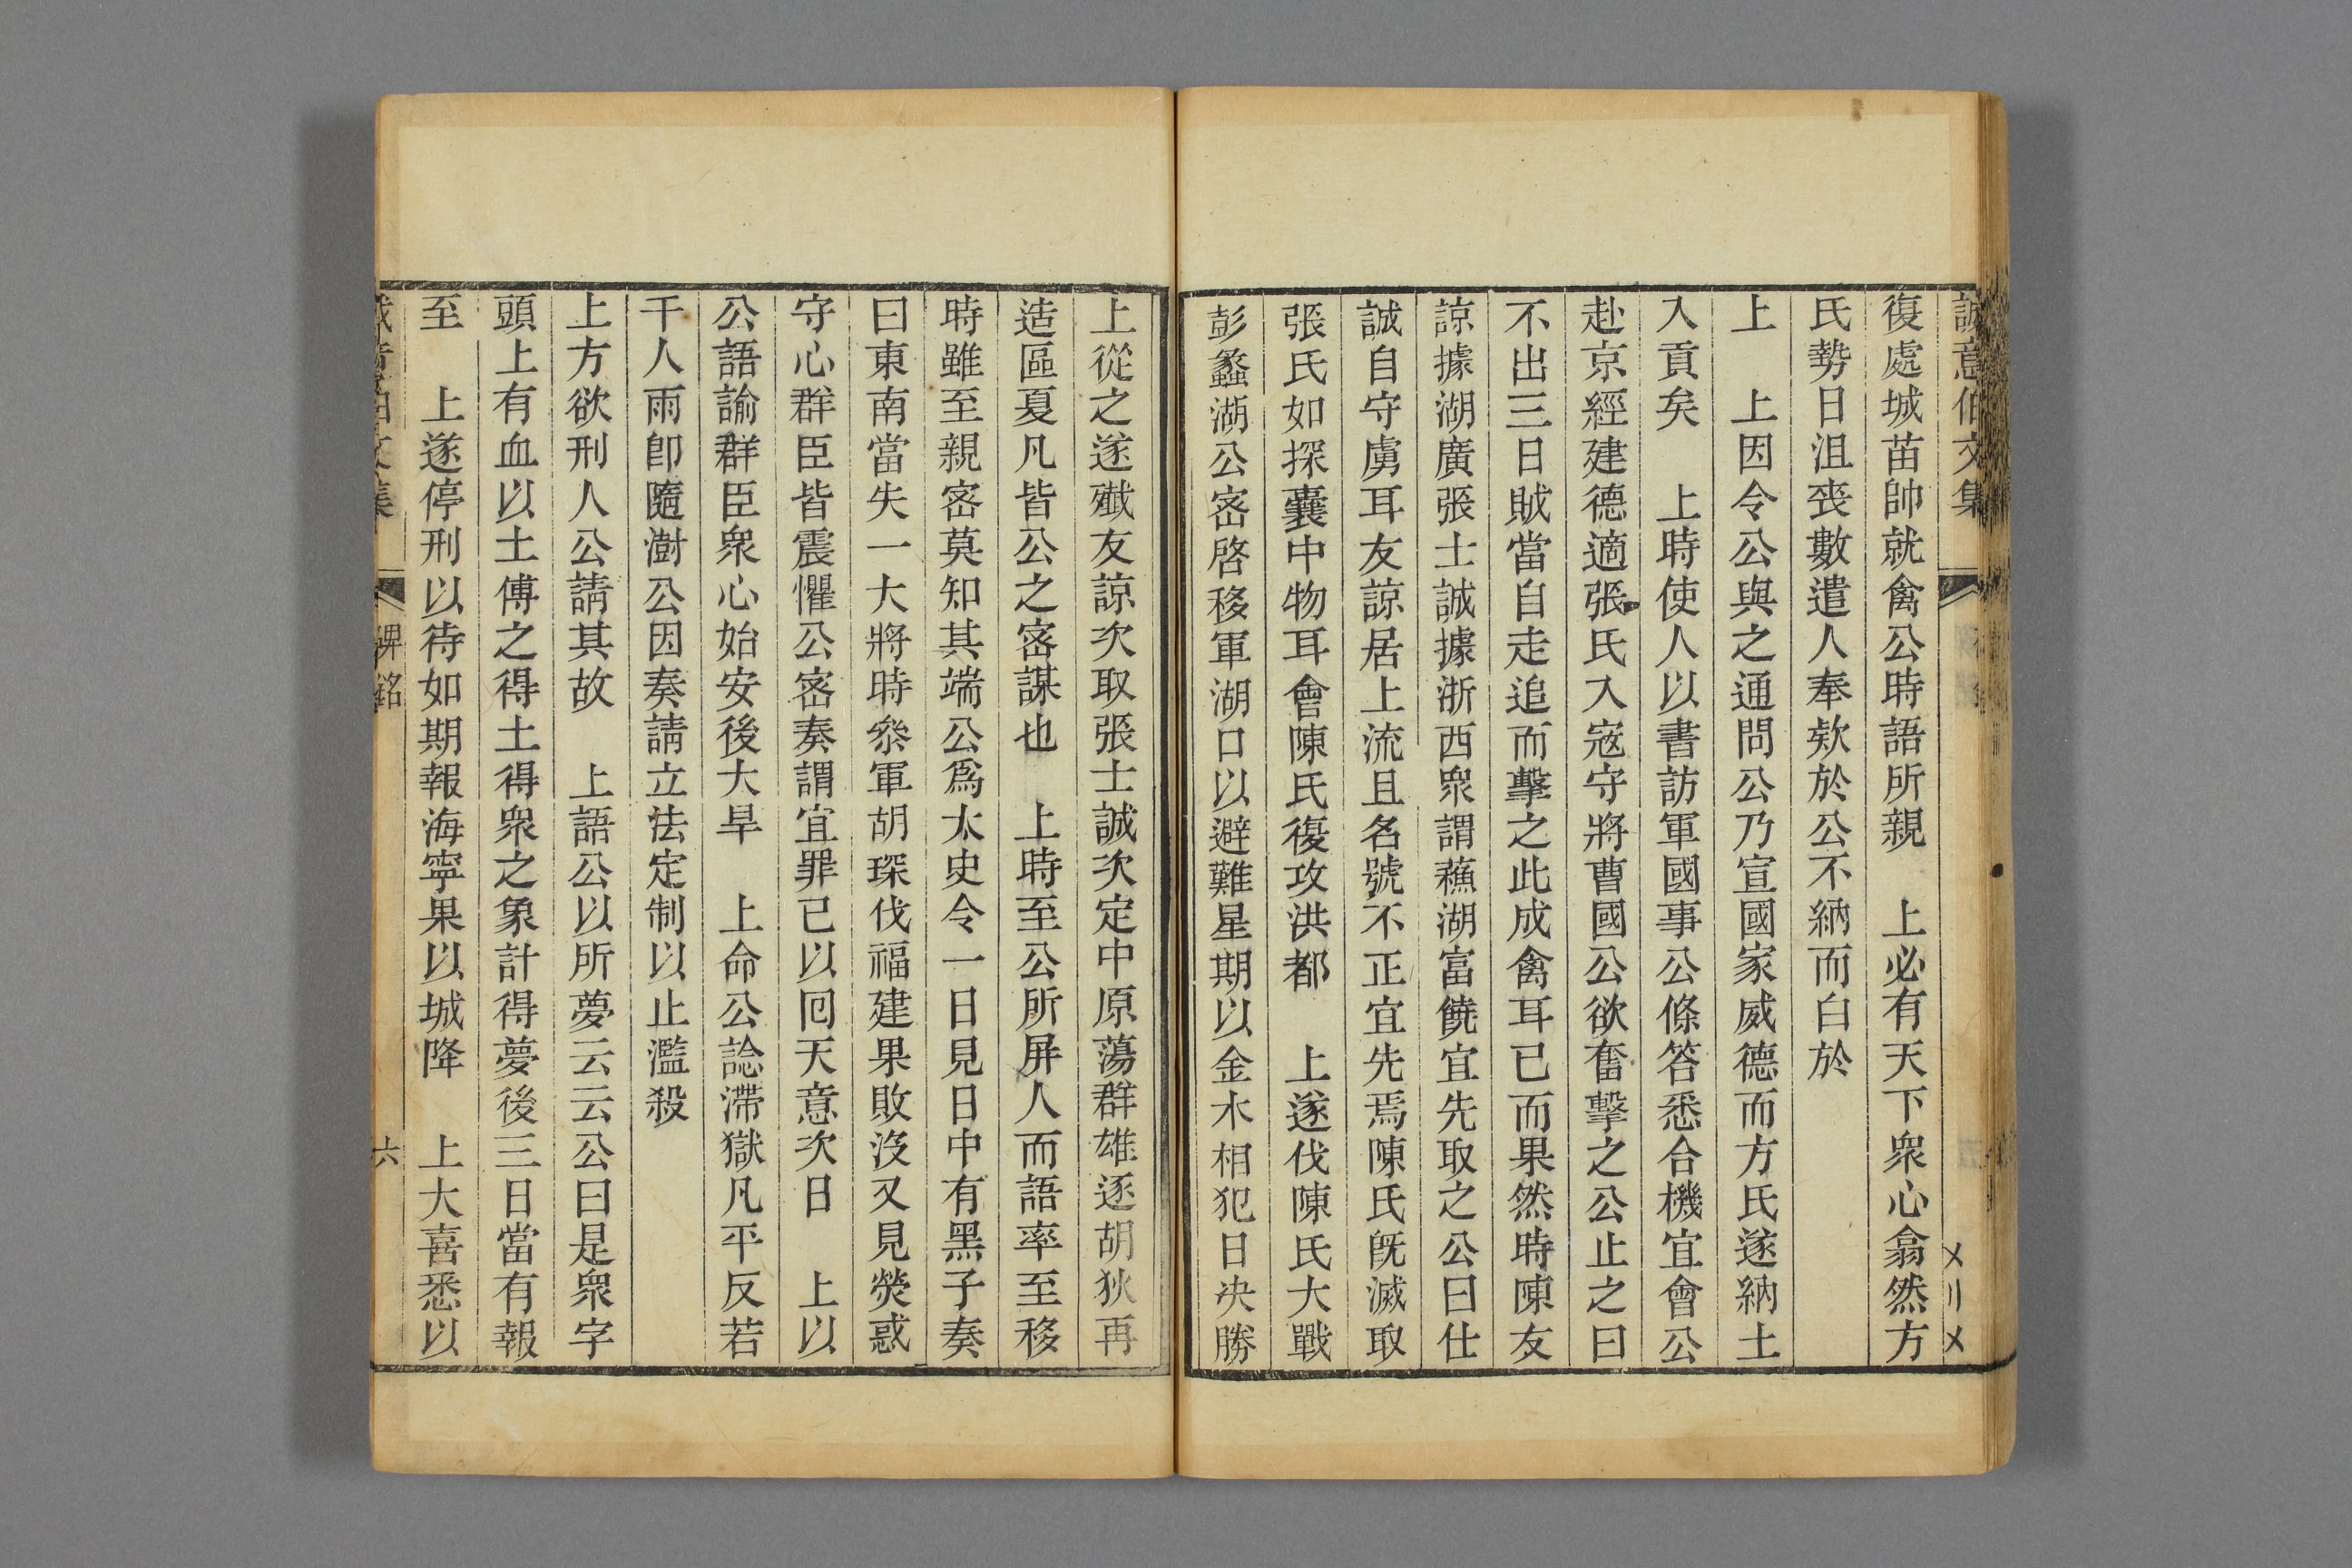 誠意伯文集
復處城苗帥就禽公時語所親　上必有天下衆心翕然方
氏勢日沮喪數遣人奉欵於公不納而白於
上　上因令公與之通問公乃宣國家威德而方氏遂納土
入貢矣　上時使人以書訪軍國事公條答悉合機宜會公
赴京經建德適張氏入寇守將曹國公欲奮擊之公止之曰
不出三日賊當自走追而擊之此成禽耳已而果然時陳友
諒據湖廣張士誠據浙西衆謂蘓湖富饒宜先取之公曰仕
誠自守虜耳友諒居上流且名號不正宜先焉陳氏旣滅取
張氏如探囊中物耳會陳氏復攻洪都　上遂伐陳氏大戰
彭蠡湖公宻啓移軍湖口以避難星期以金木相犯日决勝
上從之遂殱友諒次取張士誠次定中原蕩群雄逐胡狄再
造區夏凡皆公之宻謀也　上時至公所屏人而語率至移
時雖至親宻莫知其端公爲太史令一日見日中有黑子奏
曰東南當失一大將時叅軍胡琛伐福建果敗沒又見熒惑
守心群臣皆震懼公宻奏謂宜罪已以囘天意次日　上以
公語諭群臣衆心始安後大旱　上命公諗滯獄凡平反若
干人雨卽隨澍公因奏請立法定制以止濫殺
上方欲刑人公請其故　上語公以所夢云云公曰是衆字
頭上有血以土傅之得土得衆之象計得夢後三日當有報
至　上遂停刑以待如期報海寧果以城降　上大喜悉以
碑銘
六